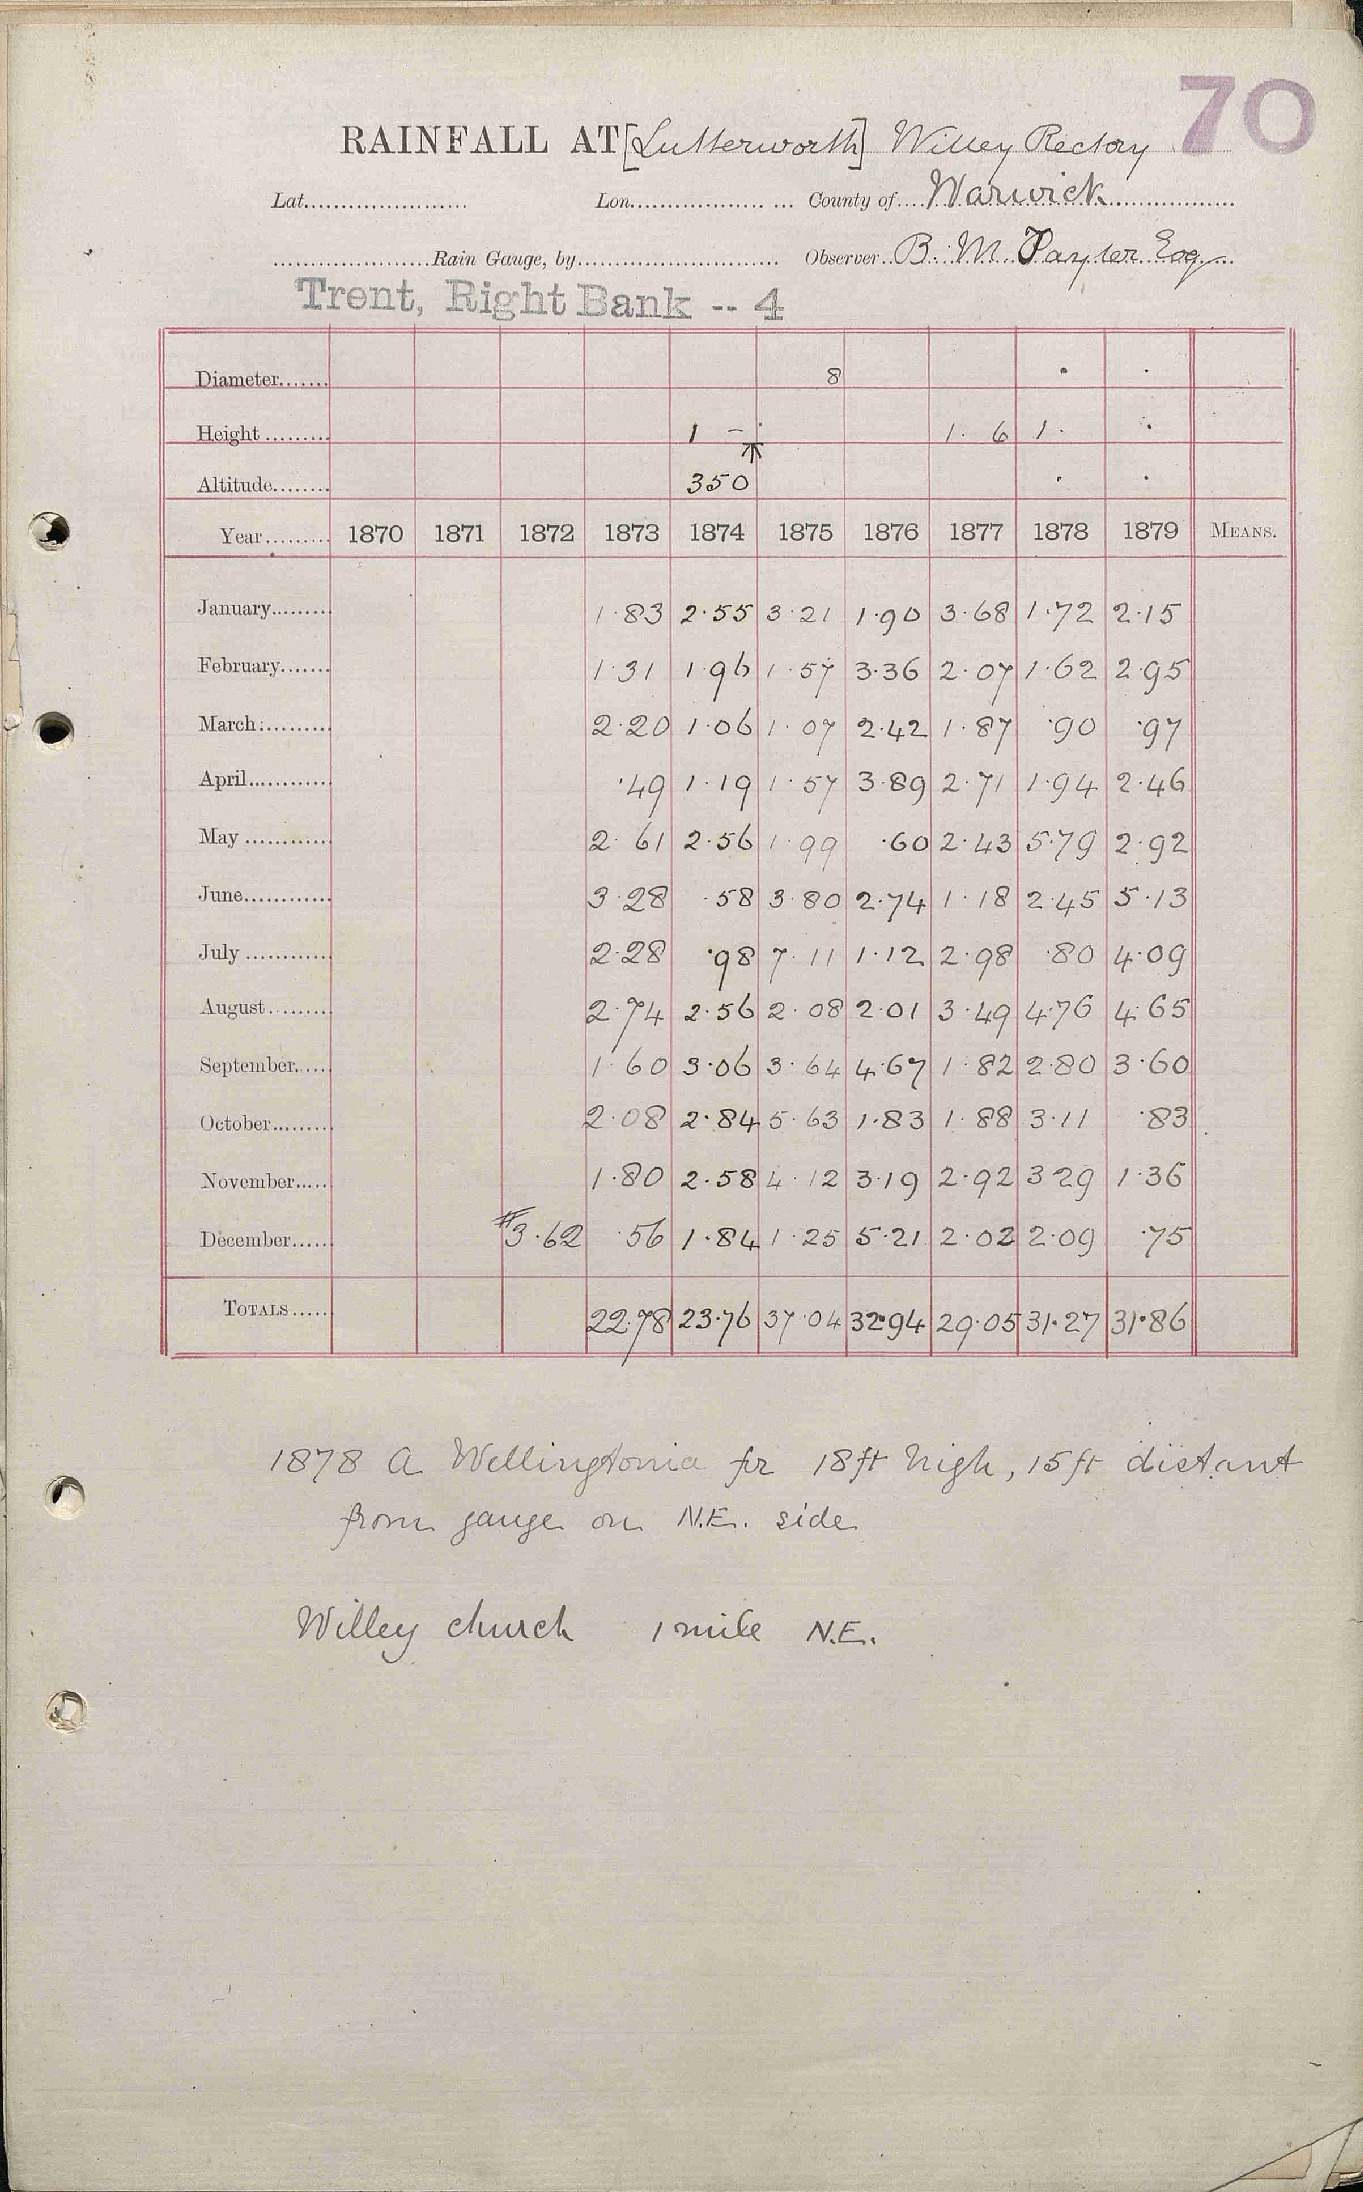 70
RAINFALL AT [Lutterworth] Willey Rectory
Lat. Lon. County of Warwick
Rain Gauge, by Observer B. M. Esq
Trent, Right Bank -- 4
Diameter 8 · ·
Height 1 - 1 · 6 1 · ·
Altitude 350 · ·
Year 1870 1871 1872 1873 1874 1875 1876 1877 1878 1879 MEANS.
January 1·83 2·55 3·21 1·90 3·68 1·72 2·15
February 1·31 1·96 1·57 3·36 2·07 1·62 2·95
March 2·20 1·06 1·07 2·42 1·87 ·90 ·97
April ·49 1·19 1·57 3·89 2·71 1·94 2·46
May 2·61 2·56 1·99 ·60 2·43 5·79 2·92
June 3·28 ·58 3·80 2·74 1·18 2·45 5·13
July 2·28 ·98 7·11 1·12 2·98 ·80 4·09
August 2·74 2·56 2·08 2·01 3·49 4·76 4·65
September 1·60 3·06 3·64 4·67 1·82 2·80 3·60
October 2·08 2·84 5·63 1·83 1·88 3·11 ·83
November 1·80 2·58 4·12 3·19 2·92 3 29 1·36
December #3·62 ·56 1·84 1·25 5·21 2·02 2·09 ·75
TOTALS 22·78 23·76 37·04 32·94 29·05 31·27 31·86
1878 A Wellingtonia fir 18ft high, 15ft distant
from gauge on N.E. side
Willey church 1 mile N.E.